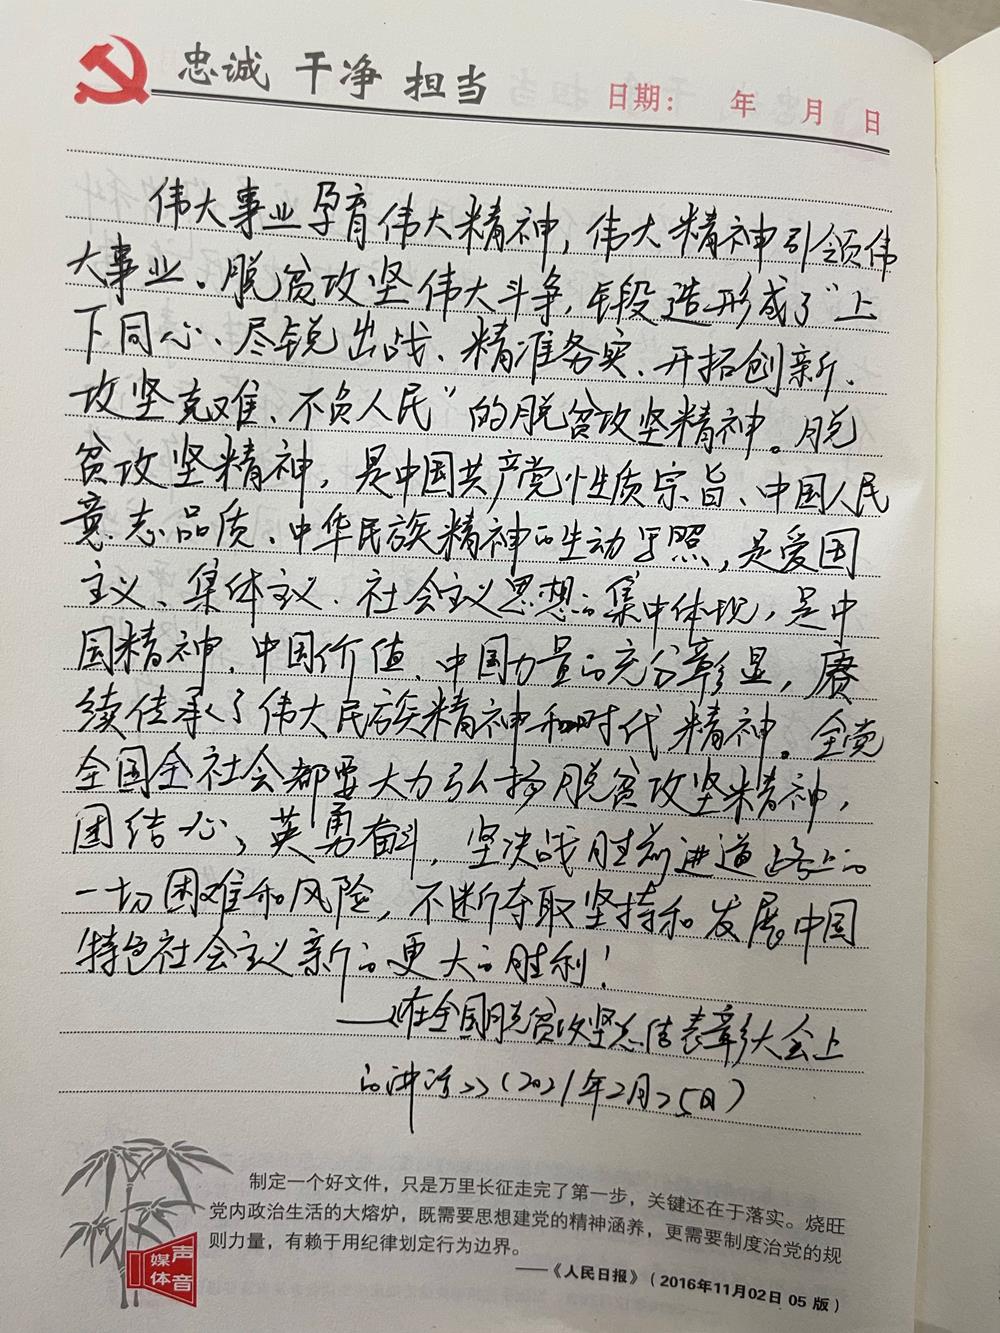 忠诚 干净 担当
日期： 年 月 日
伟大事业孕育伟大精神，伟大精神引领伟
大事业。脱贫攻坚伟大斗争，锻造形成了“上
下同心、尽锐出战、精准务实、开拓创新、
攻坚克难、不负人民”的脱贫攻坚精神。脱
贫攻坚精神，是中国共产党性质宗旨、中国人民
意志品质、中华民族精神的生动写照，是爱国
主义、集体主义、社会主义思想的集中体现，是中
国精神、中国价值、中国力量的充分彰显，赓
续传承了伟大民族精神和时代精神。全党
全国全社会都要大力弘扬脱贫攻坚精神，
团结一心，英勇奋斗，坚决战胜前进道路上的
一切困难和风险，不断夺取坚持和发展中国
特色社会主义新的更大的胜利！
——《在全国脱贫攻坚总结表彰大会上
的讲话》（2021年2月25日）
制定一个好文件，只是万里长征走完了第一步，关键还在于落实。烧旺
党内政治生活的大熔炉，既需要思想建党的精神涵养，更需要制度治党的规
则力量，有赖于用纪律划定行为边界。
——《人民日报》（2016年11月02日 05 版）
媒体
声音